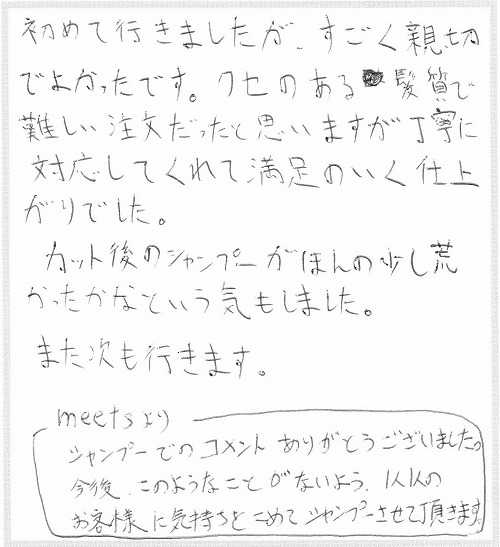 初めて行きましたが、すごく親切
でよかったです。クセのある髪質で
難しい注文だったと思いますが丁寧に
対応してくれて満足のいく仕上
がりでした。
カット後のシャンプーがほんの少し荒
かったかなという気もしました。
また次も行きます。
meetsより
シャンプーでのコメントありがとうございました。
今後、このようなことがないよう、1人1人の
お客様に気持ちをこめてシャンプーさせて頂きます。